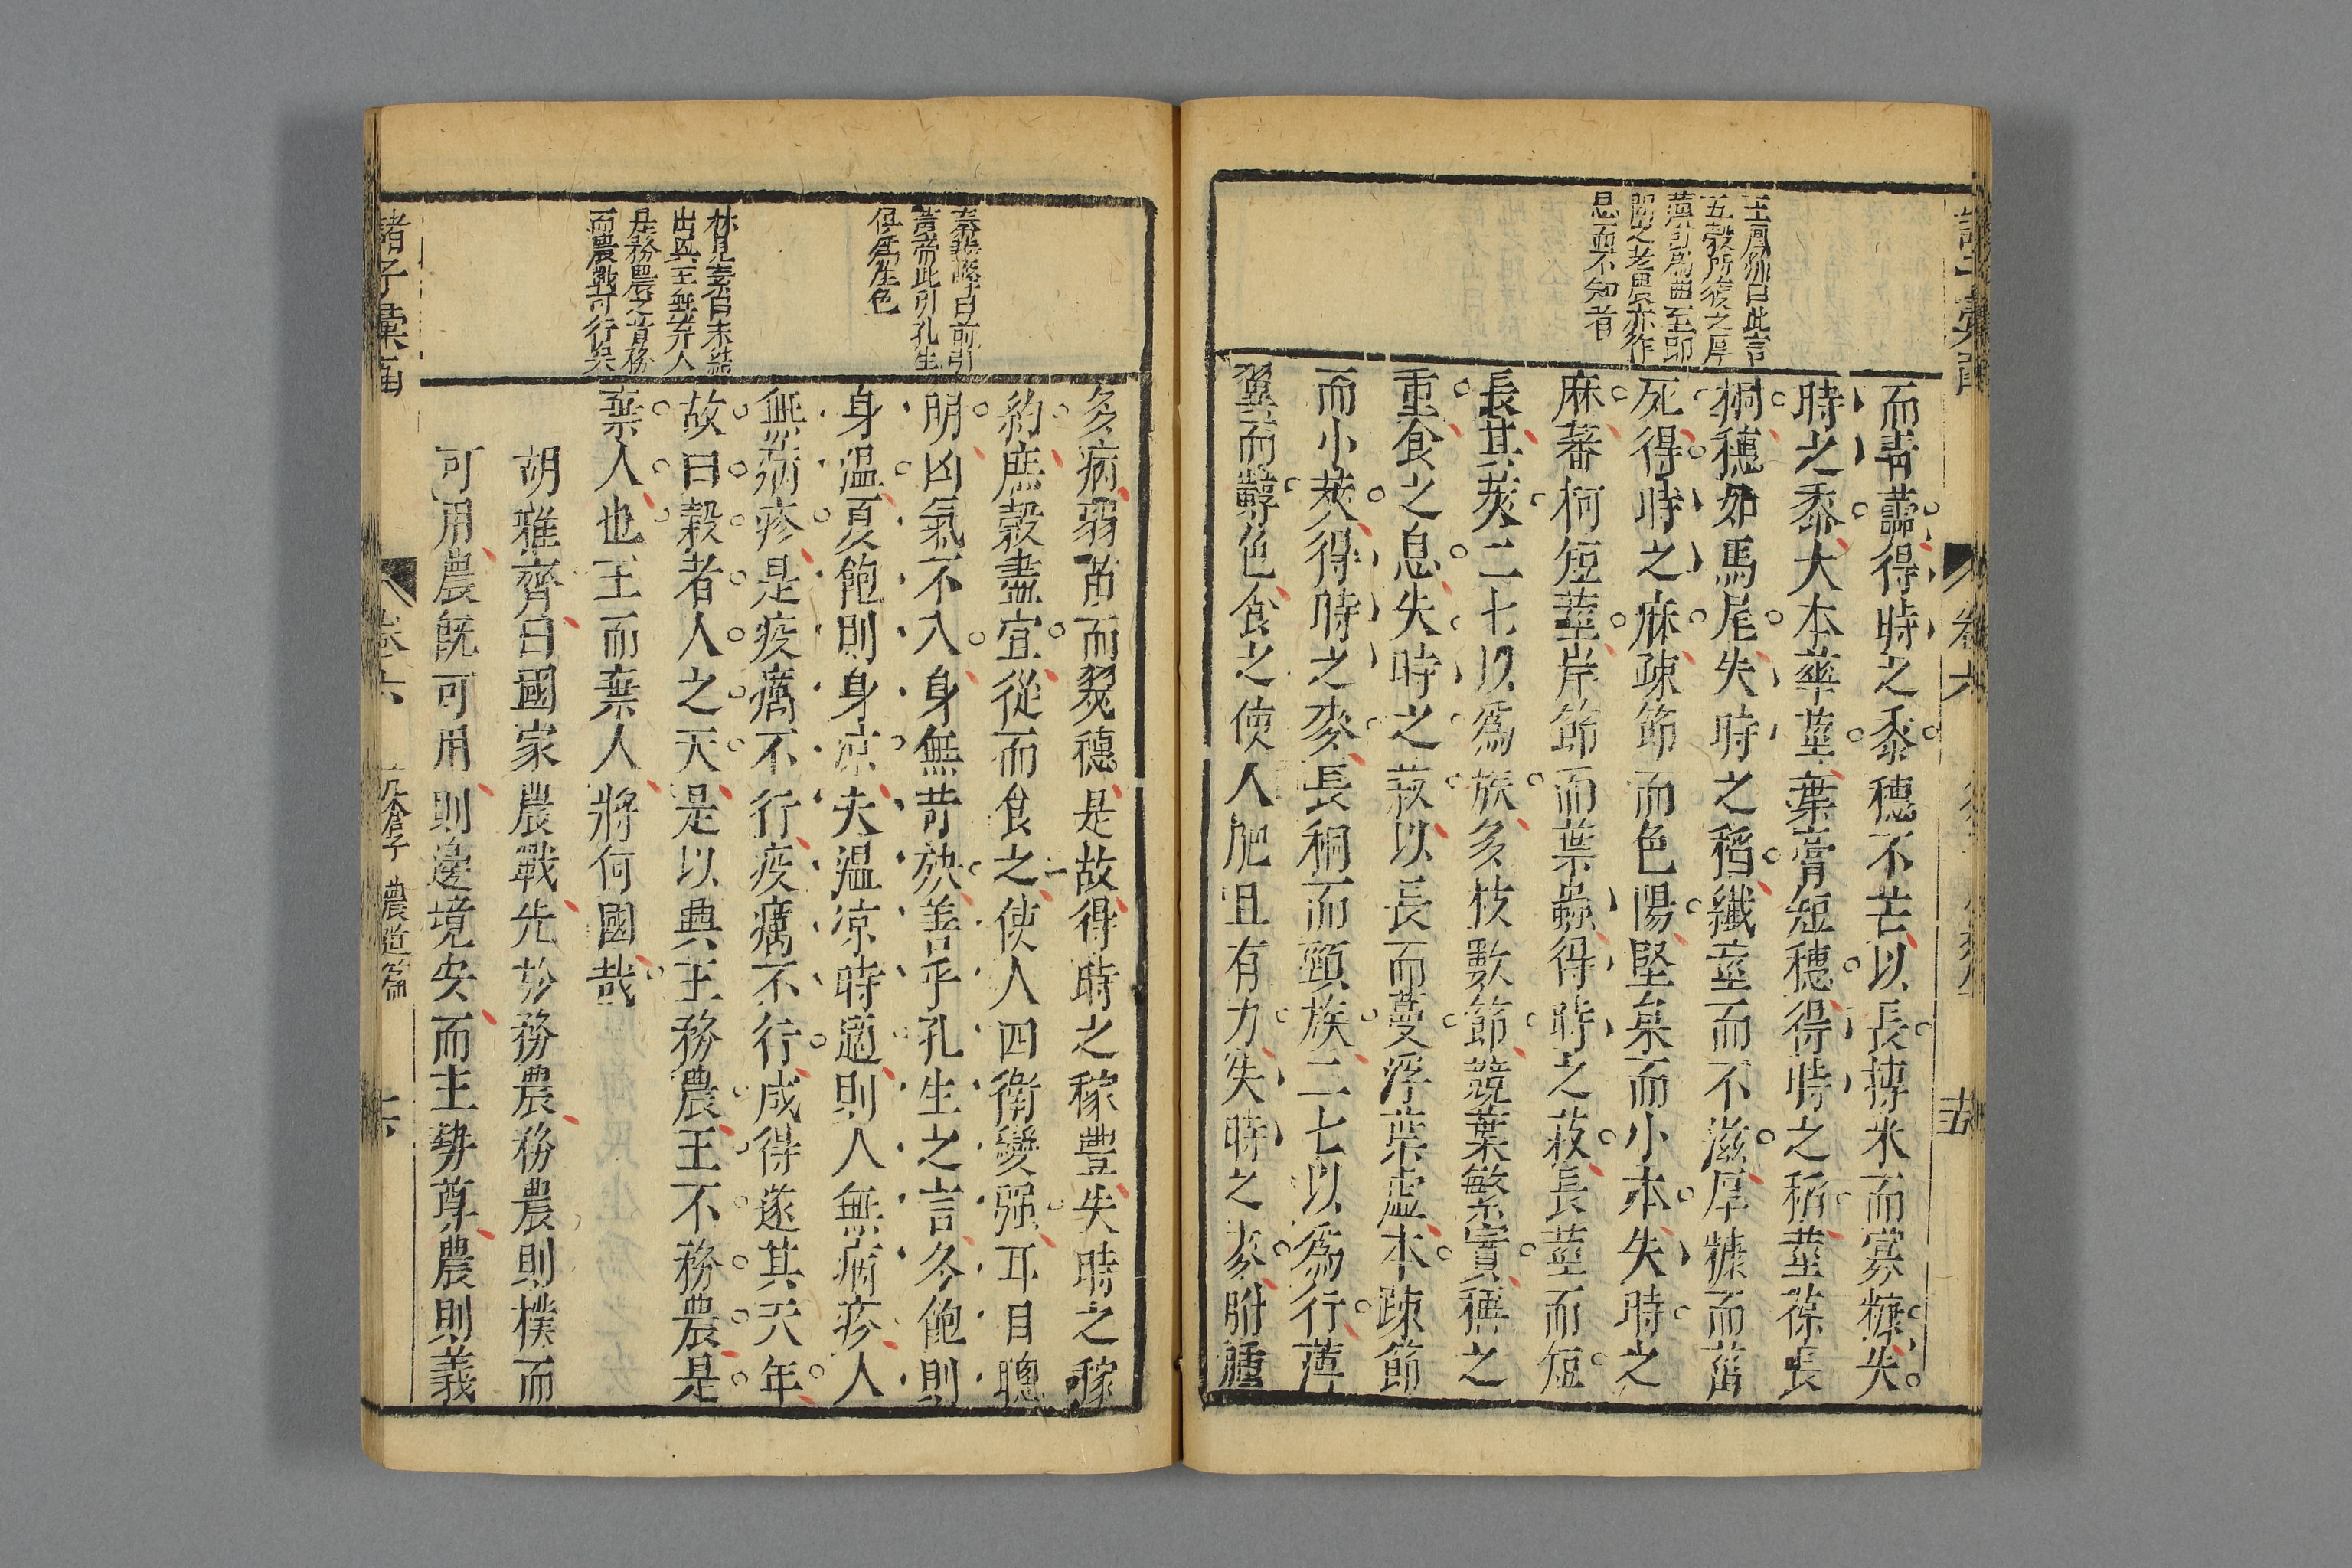 王鳳洲曰此言
五穀所穫之厚
薄可爲曲至即
問之老農亦作
思而不知者
而青蘦得時之黍穗不芒以長摶米而寡糠失
時之黍大本華莖葉膏短穗得時之稻莖葆長
桐穗如馬尾失時之稻纖莖而不滋厚糠而菑
死得時之麻疎節而色陽堅枲而小本失時之
麻蕃柯短莖岸節而葉蟲得時之菽長莖而短
長其莢二七以爲族多枝數節競葉繁實稱之
重食之息失時之菽以長而蔓浮葉虛本疎節
而小莢得時之麥長稠而頸族二七以爲行薄
翼而䵍色食之使人肥且有力失時之麥胕腫
卷六
秦華峰曰前引
黃帝此引孔生
俱爲生色
林見素曰未結
出興王無弃人
是務農之首務
而農戰可行矣
多病弱苗而翜穗是故得時之稼豊失時之稼
約庶穀盡宜從而食之使人四衛變强耳目聰
明凶氣不入身無苛殃善乎孔生之言冬飽則
身温夏飽則身凉夫温凉時適則人無病疹人
無病疹是疫癘不行疫癘不行咸得遂其天年
故曰穀者人之天是以興王務農王不務農是
棄人也王而棄人將何國哉
胡雅齊曰國家農戰先於務農務農則樸而
可用農既可用則邊境安而主勢尊農則義
諸子彙函
卷六
亢倉子 農道篇